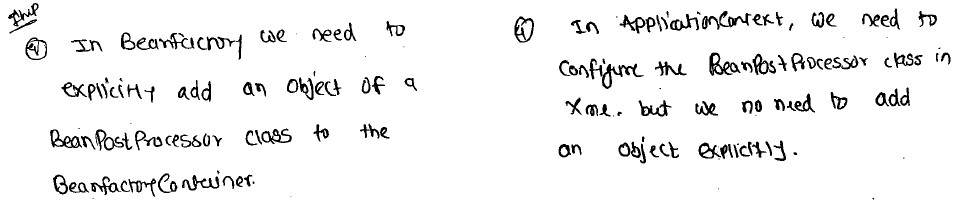 Imp
④ In Beanfactory we need to
explicitly add an object of a
BeanPostProcessor class to the
BeanfactoryContainer.
④ In ApplicationContext, we need to
configure the BeanPostProcessor class in
Xml. but we no need to add
an object explicitly.